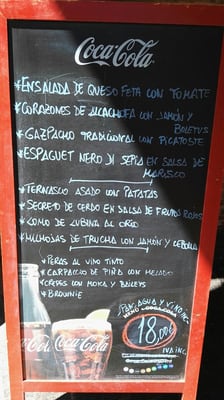 Coca-Cola
*ENSALADA DE QUESO FETA CON TOMATE
*CORAZONES DE ALCACHOFA CON JAMÓN Y
BOLETUS
*GAZPACHO TRADICIONAL CON PICATOSTE
*ESPAGUET NERO DI SEPIA EN SALSA DE
MARISCO
*TERNASCO ASADO CON PATATAS
*SECRETO DE CERDO EN SALSA DE FRUTOS ROJOS
*LOMO DE LUBINA AL ORIO
*MILHOJAS DE TRUCHA CON JAMÓN Y CEBOLLA
*PERAS AL VINO TINTO
*CARPACCIO DE PIÑA CON HELADO
*CREPES CON MOKA Y BAILEYS
*BROWNIE
PAN, AGUA Y VINO INC.
18,00€
IVA INC.
Coca-Cola